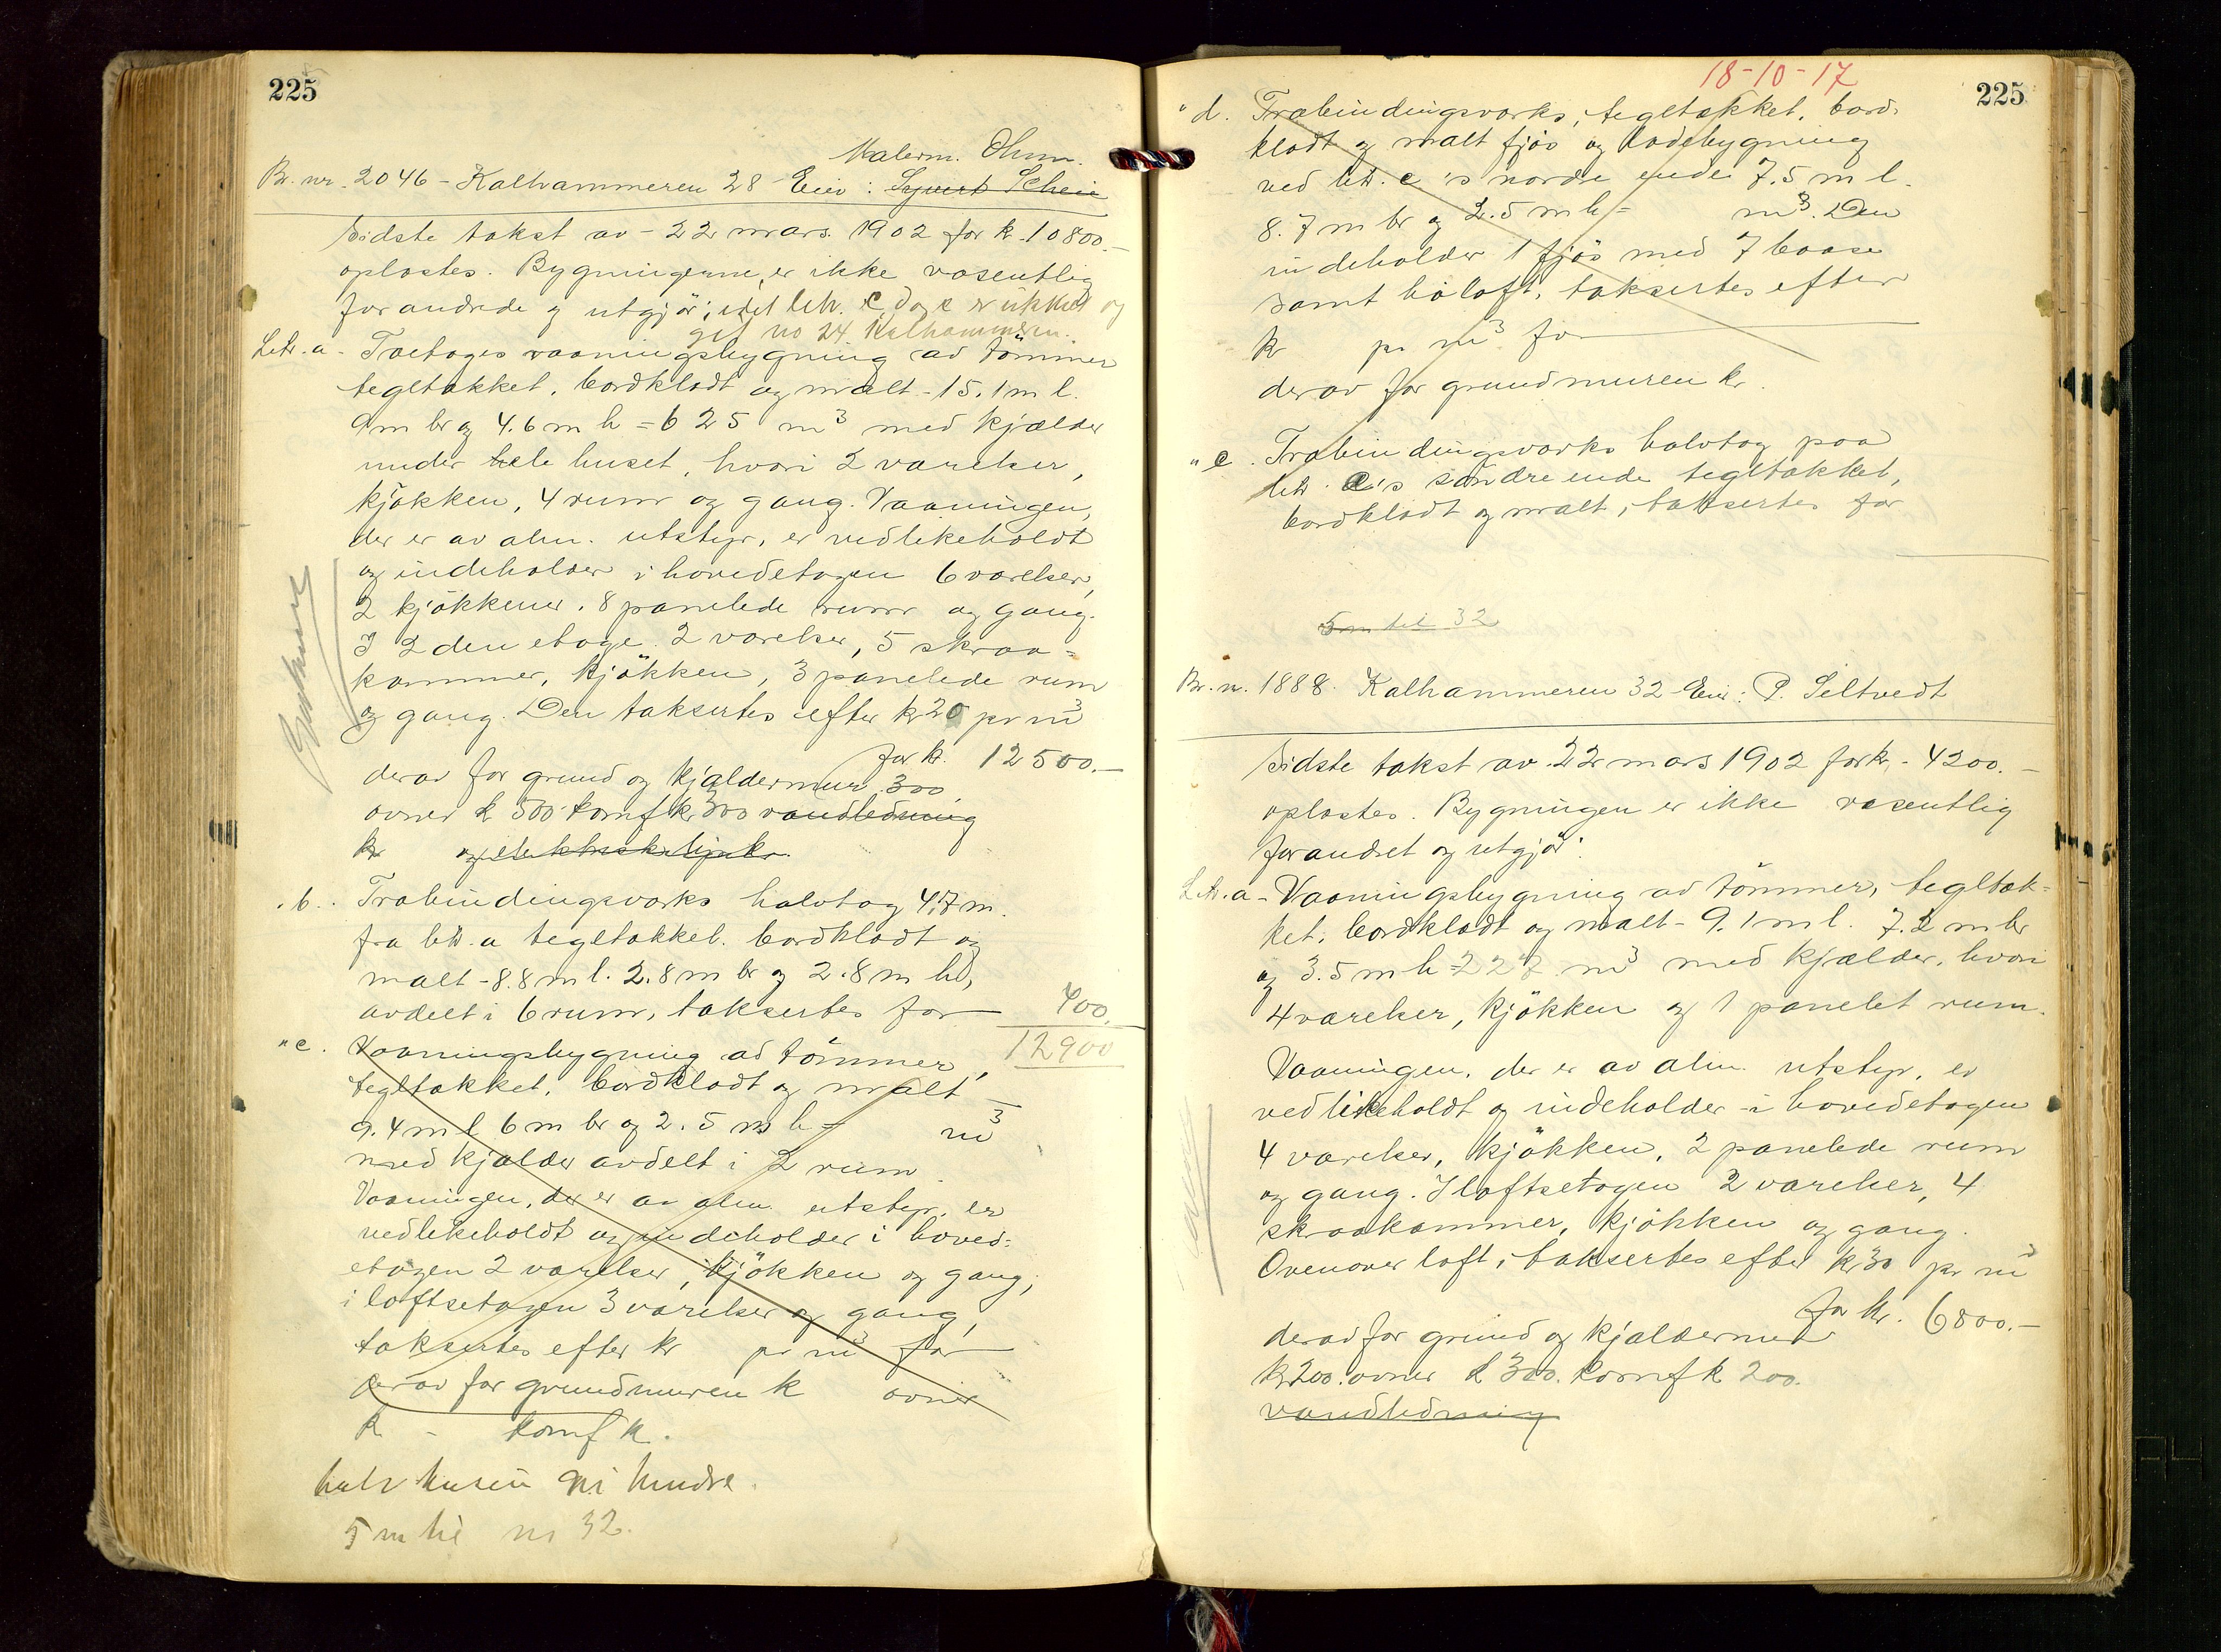 225
Malerm. Ohm.
Br. nr. 2046 - Kalhammeren 28 Eier: Sjurt Schei
Sidste takst av - 22 mars 1902 for kr. 10800.-
oplæstes. Bygningerne er ikke væsentlig
forandrede og utgjør; idet litr. c, d og e er rykket og
git no 24. Kalhammeren.
Litr. a - Toetages vaaningsbygning av tömmer
tegltækket, bordklædt og malt - 15.1 m l.
9 m br og 4.6 m h = 625 m³ med kjælder
under hele huset, hvori 2 værelser,
kjökken, 4 rum og gang. Vaaningen,
der er av alm. utstyr, er vedlikeholdt
og indeholder i hovedetagen 6 værelser,
2 kjökkener, 8 panelede rum og gang.
I 2den etage 2 værelser, 5 skraa=
kammer, kjökken, 3 panelede rum
og gang. Den taksertes efter kr 20 pr m³
for kr. 12500.-
derav for grund og kjældermur 300
ovner k 500 komf kr 300 vandledning
kr og elektrisk lys kr.
" b. Træbindingsværks halvtag 4.7 m
fra litr. a tegltækket. bordklædt og
malt - 8.8 m l. 2.8 m br og 2.8 m h,
avdelt i 6 rum, taksertes for 400.
12900
" c. Vaaningsbygning av tömmer,
tegltækket, bordklædt og malt -
9.4 m l 6 m br og 2.5 m h = m³
med kjælder avdelt i 2 rum.
Vaaningen, der er av alm. utstyr, er
vedlikeholdt og indeholder i hoved=
etagen 2 værelser, kjökken og gang,
i loftsetagen 3 værelser og gang,
taksertes efter kr pr m³ for
derav for grundmuren k ovner
k - komf k.
5 m til nr 32.
18-10-17
225
" d. Træbindingsværks, tegltækket, bord=
klædt og malt fjös og ladebygning
ved litr. c's nordre ende 7.5 m l.
8.7 m br og 2.5 m h = m³. Den
indeholder 1 fjös med 7 baase
samt höloft, taksertes efter
kr pr m³ for
derav for grundmuren kr.
" e. Træbindingsværks halvtag paa
litr. c's söndre ende tegltækket,
bordklædt og malt, taksertes for
5 m til 32
Br. n. 1888. Kalhammeren 32 Eier: P. Seltvedt
Sidste takst av 22 mars 1902 for kr. - 4200.-
oplæstes. Bygningen er ikke væsentlig
forandret og utgjør:
Litr. a - Vaaningsbygning av tömmer, tegltæk=
ket, bordklædt og malt - 9.1 m l. 7.2 m br
og 3.5 m h = 227 m³ med kjælder, hvori
4 værelser, kjökken og 1 panelet rum.
Vaaningen, der er av alm. utstyr, er
vedlikeholdt og indeholder i hovedetagen
4 værelser, kjökken, 2 panelede rum
og gang. I loftsetagen 2 værelser, 4
skraakammer, kjökken og gang.
Ovenover loft, taksertes efter kr 30 pr m³
for kr. 6800.-
derav for grund og kjældermur
kr 200. ovner k 300. komf k 200.
vandledning